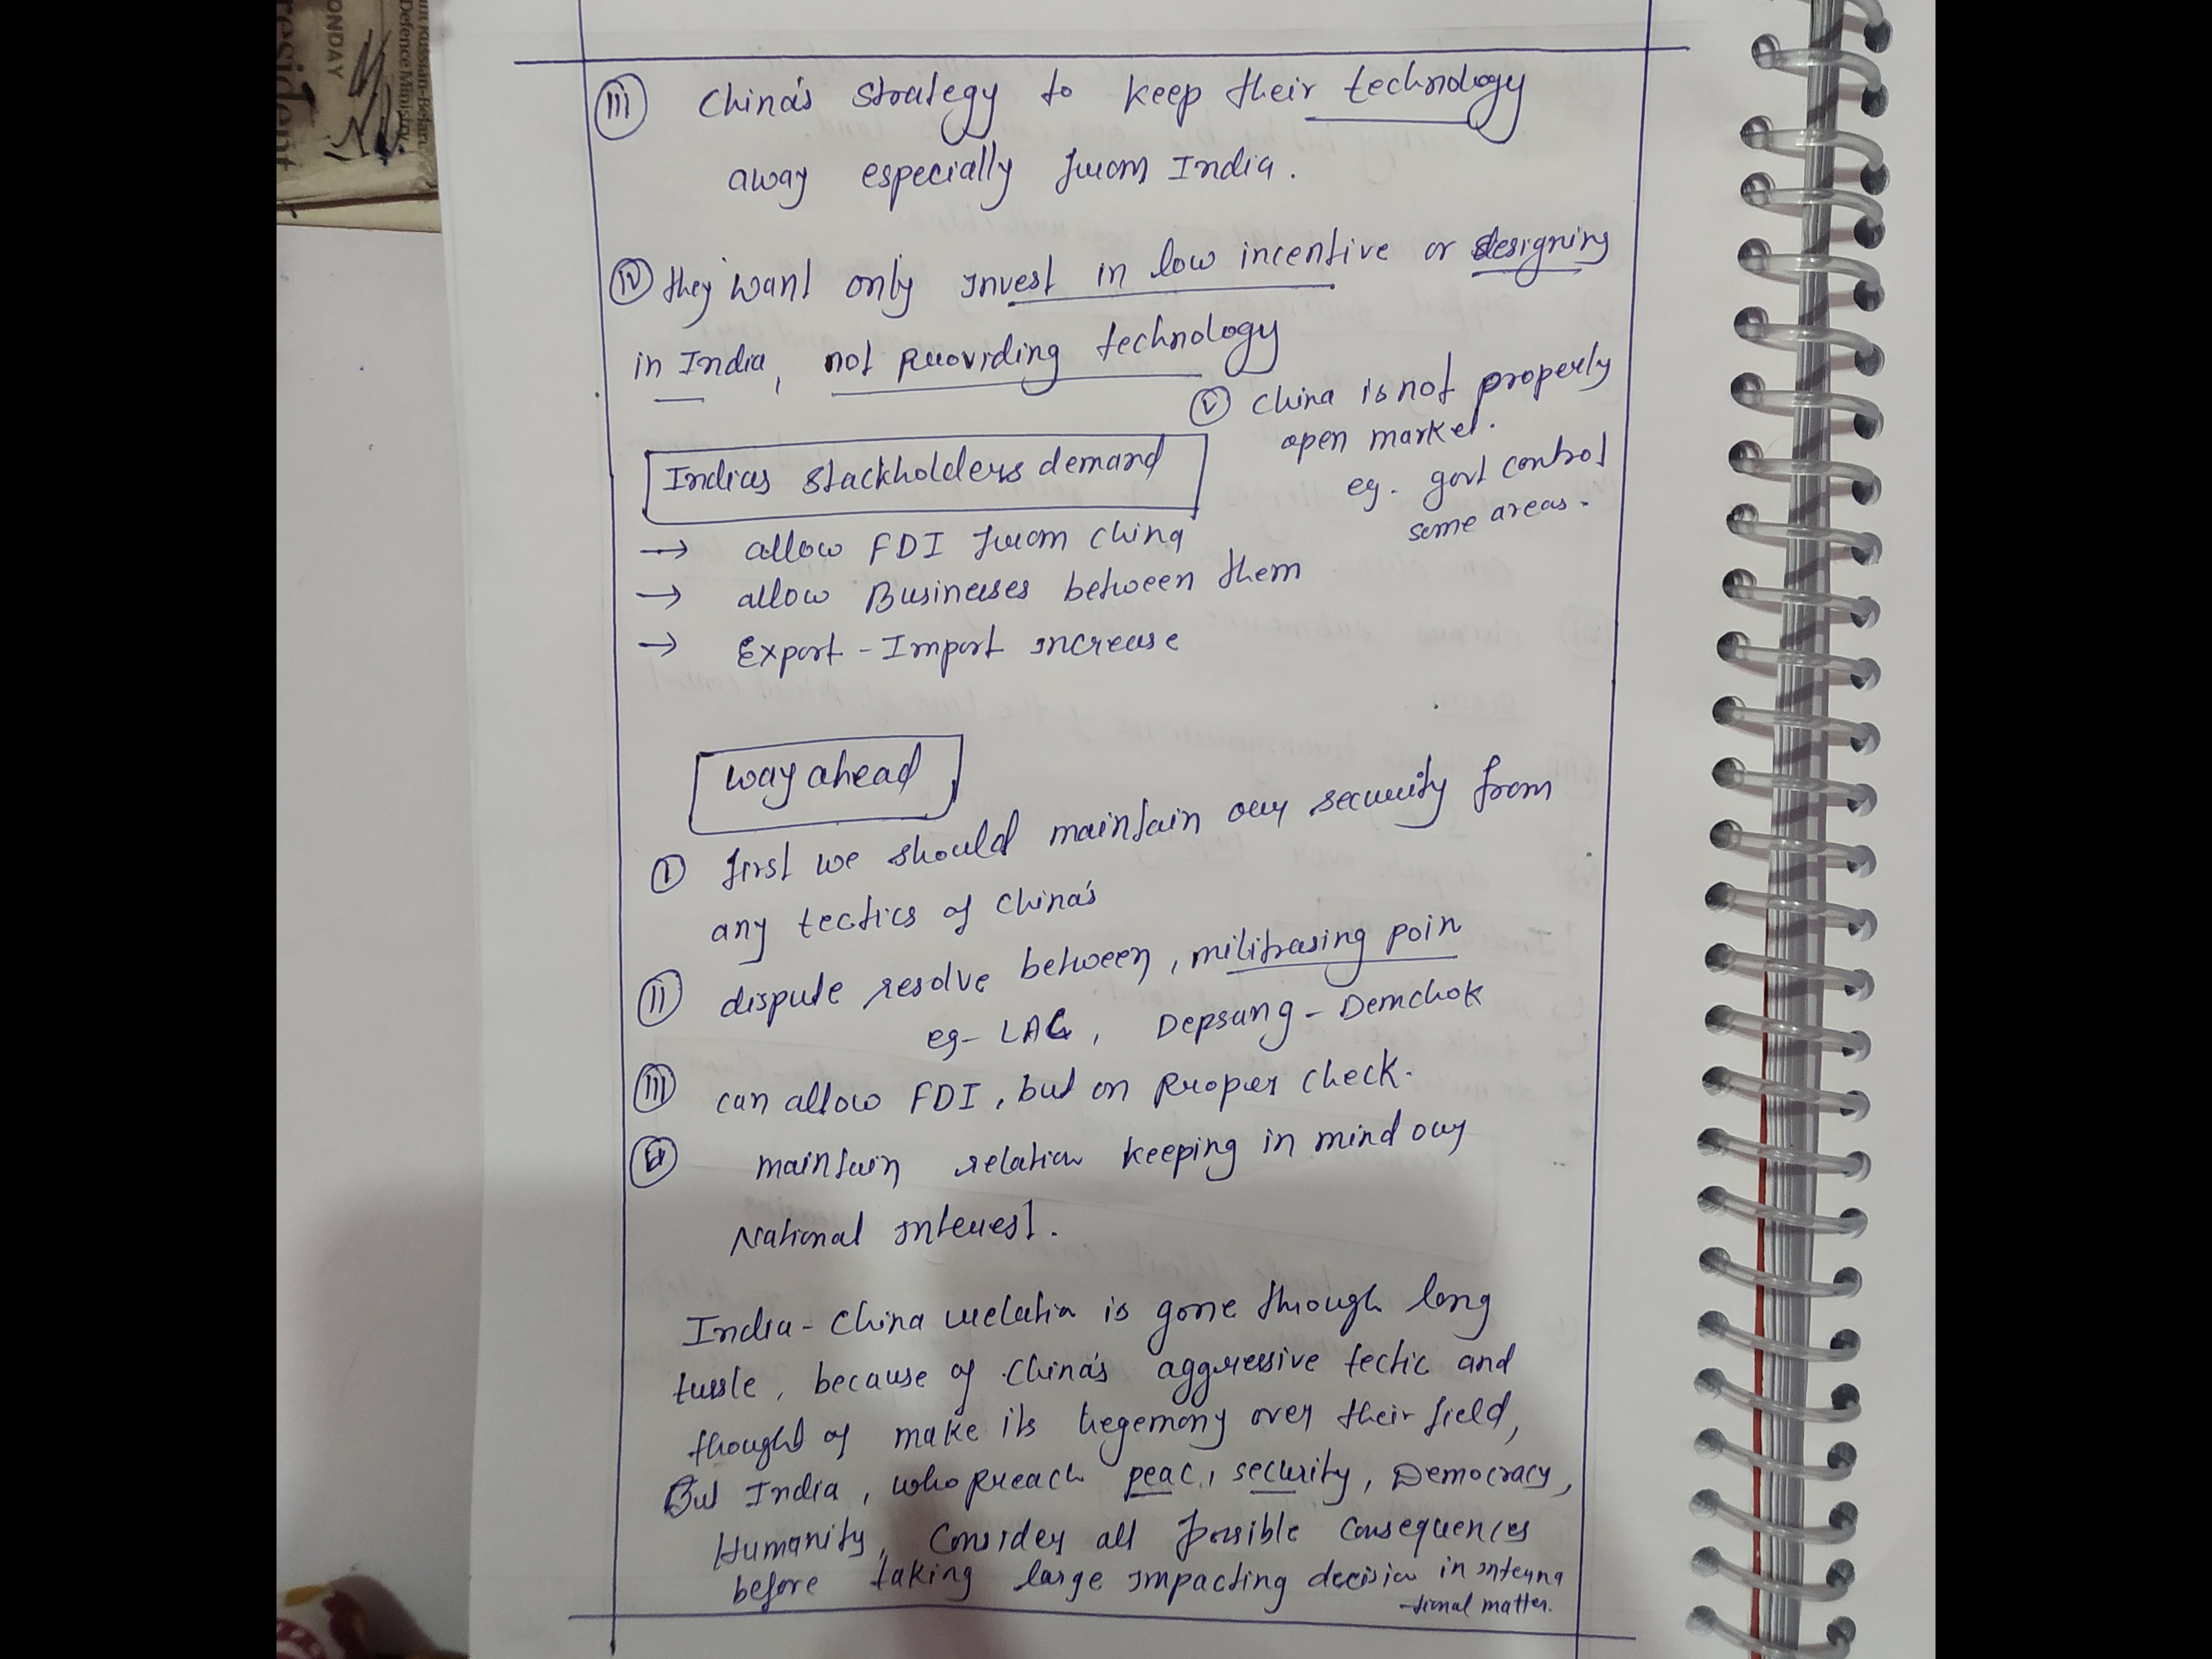 int Russian-Belar
Defence Ministry.
ONDAY
resident
(III) China's strategy to keep their technology
away especially from India.
(IV) they want only invest in low incentive or designing
in India, not providing technology
(V) China is not properly
open market.
eg. govt control
some areas.
Indias stackholders demand
→ allow FDI from China
→ allow Businesses between them
→ Export - Import increase
way ahead
(I) first we should maintain our security from
any tectics of China's
(II) dispute resolve between, militrasing poin
eg- LAC, Depsang - Demchok
(III) can allow FDI, but on proper check.
maintain relation keeping in mind our
National interest.
India - China relation is gone through long
tussle, because of China's aggressive tectic and
thought of make its hegemony over their field,
But India, who preach peac, security, Democracy,
Humanity, Consider all possible consequences
before taking large impacting decision in interna
-tional matter.